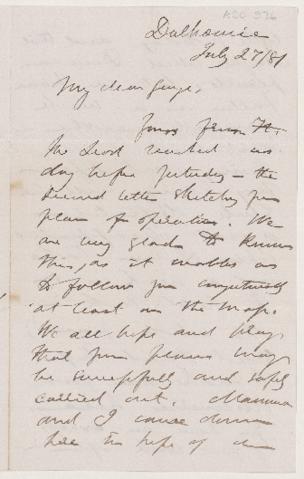 Dalhousie
July 27/81
My dear George,
Yours from Ft.
McLeod reached us
day before yesterday – the
second letter sketching your
plan of operation. We
are very glad to know
this, as it enables us
to follow you conjecturally
at least on the map.
We all hope and pray
that your plans may
be successfully and safely
carried out. Mamma
and I came down
here in hope of